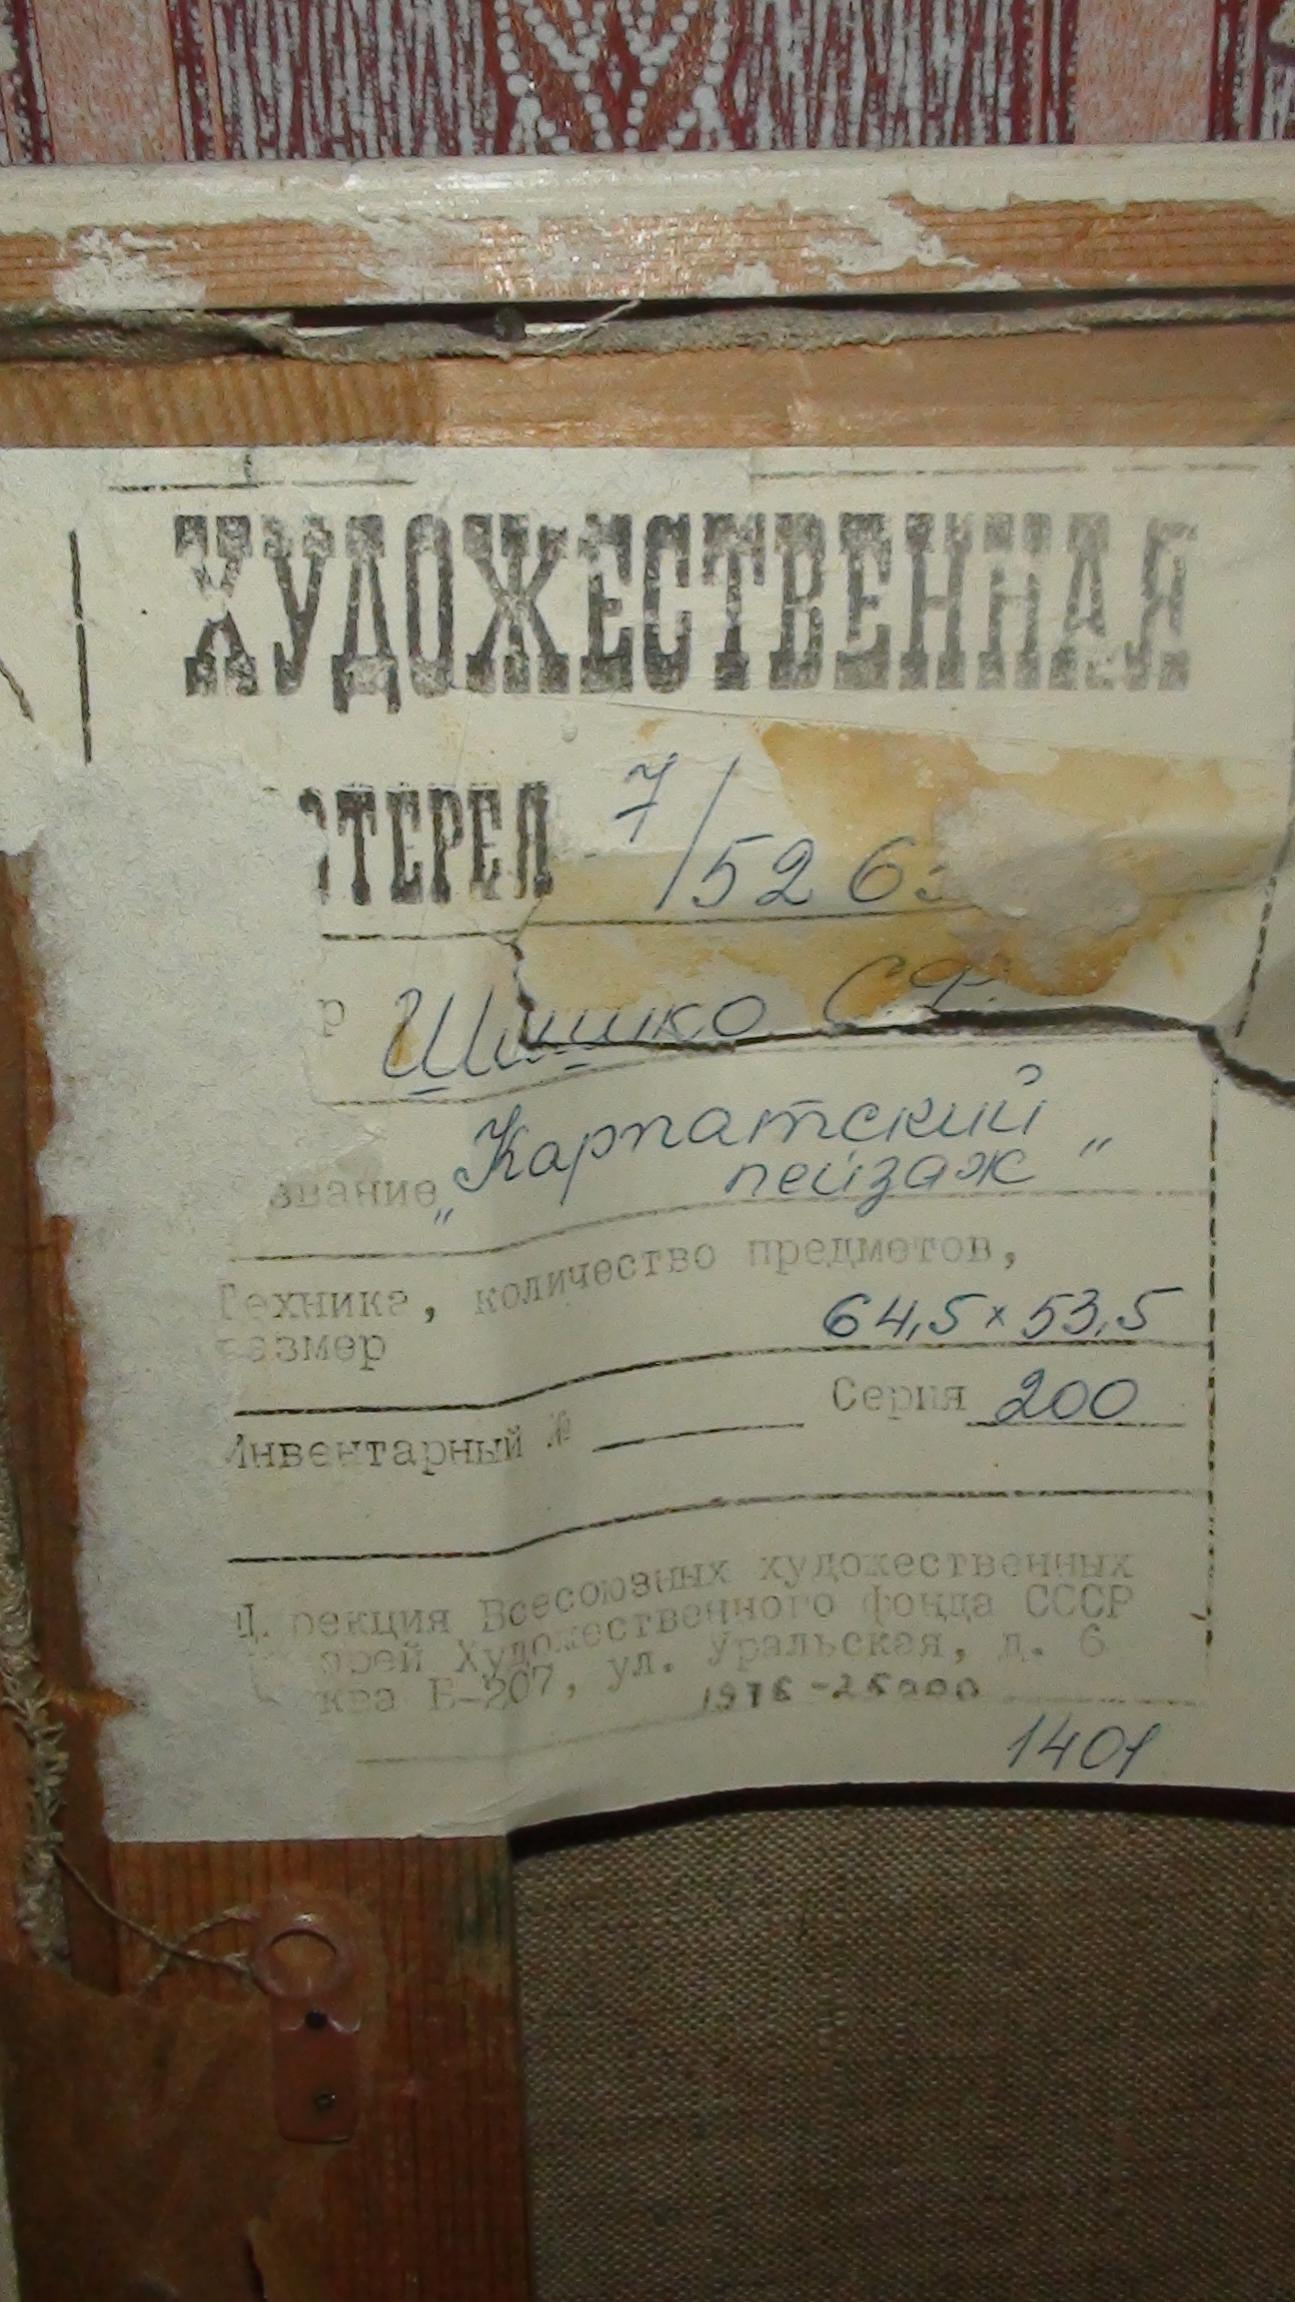 ХУДОЖЕСТВЕННАЯ
ОТЕРЕЯ 7/526
р Шишко С.Ф.
звание „Карпатский
пейзаж"
Техника, количество предметов,
размер 64,5 × 53,5
Инвентарный № Серия 200
Дирекция Всесоюзных художественных
ерей Художественного фонда СССР
ква Б-207, ул. Уральская, д. 6
1976 - 25000
1401